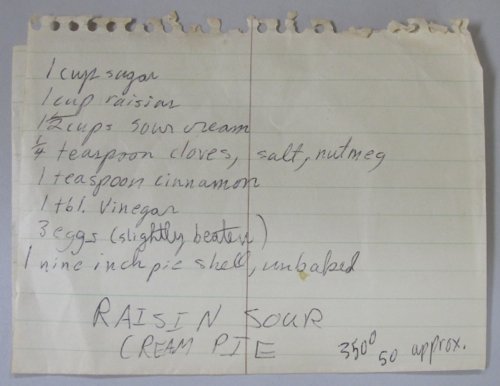 1 cup sugar
1 cup raisins
1 1/2 cups sour cream
1/4 teaspoon cloves, salt, nutmeg
1 teaspoon cinnamon
1 tbl. vinegar
3 eggs (slightly beaten)
1 nine inch pie shell, unbaked
RAISIN SOUR
CREAM PIE
350° 50 approx.